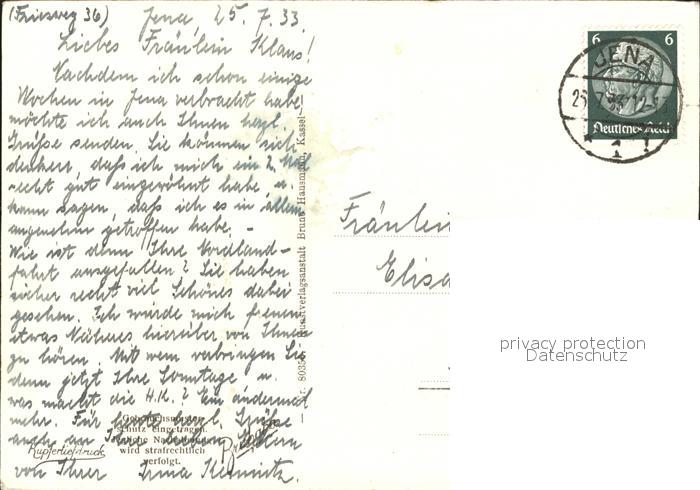 (Friesweg 36) Jena, 25.7.33.
Liebes Fräulein Klaus!
Nachdem ich schon einige
Wochen in Jena verbracht habe,
möchte ich auch Ihnen herzl.
Grüße senden. Sie können sich
denken, daß ich mich ein 2. Mal
recht gut eingewöhnt habe u.
kann sagen, daß ich es in allem
angenehm getroffen habe. -
Wie ist denn Ihre Nordland-
fahrt ausgefallen? Sie haben
sicher recht viel Schönes dabei
gesehen. Ich würde mich freuen,
etwas Näheres hierüber von Ihnen
zu hören. Mit wem verbringen Sie
denn jetzt Ihre Sonntage u.
was macht die H.K.? Ein andermal
mehr. Für heute herzl. Grüße
auch an Ihre Eltern
von Ihrer Irma Kemnitz.
Gebrauchsmuster-
schutz eingetragen.
Jegliche Nachahmung
wird strafrechtlich
verfolgt.
Kupfertiefdruck
Nr. 8035 Kunstverlagsanstalt Bruno Hansmann, Kassel
6 6
Deutsches Reich
JENA
1
Fräulein
Elisa
privacy protection
Datenschutz